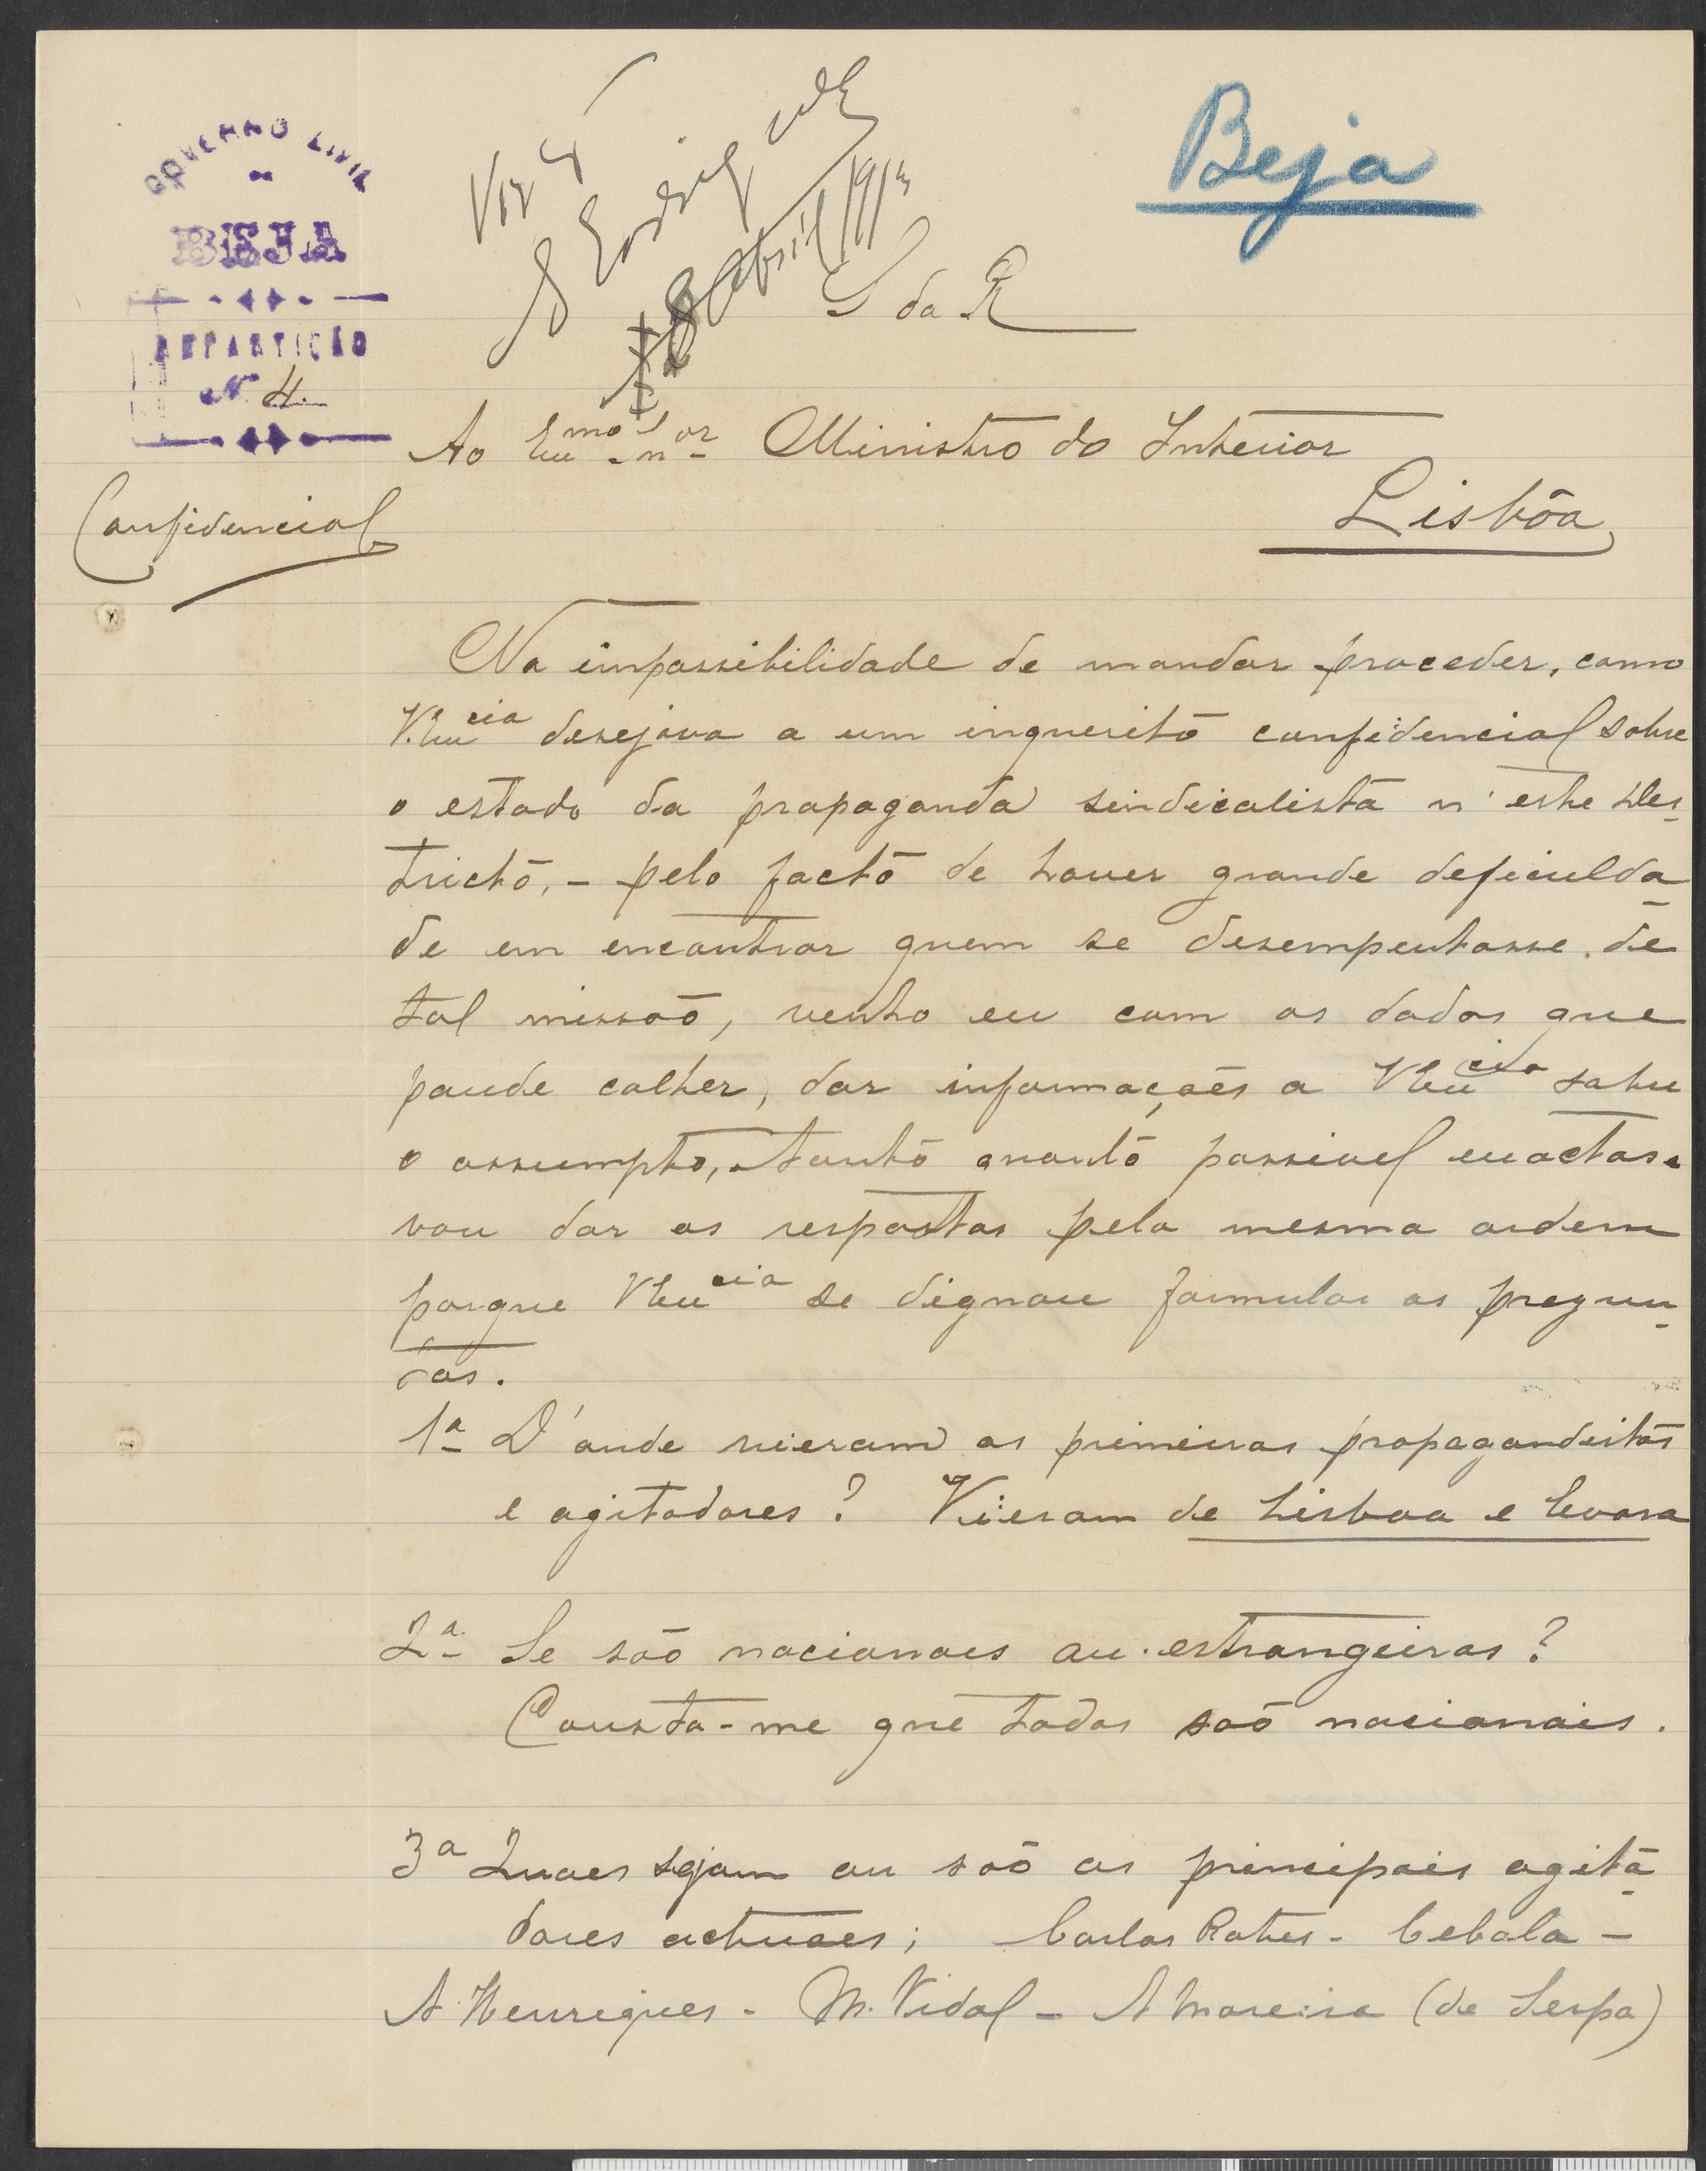 GOVERNO CIVIL
DE
BEJA
REPARTIÇÃO
Nº 4.
Beja
8 Abril 1913
S da R
Ao Exmo Snor Ministro do Interior
Lisbôa
Confidencial
Na impossibilidade de mandar proceder, como
V. Excia desejava a um inquerito confidencial sobre
o estado da propaganda sindicalista n'este Des-
tricto, - pelo facto de haver grande deficulda-
de em encontrar quem se desempenhasse de
tal missão, venho eu com os dados que
poude colher, dar informações a V Excia sobre
o assumpto, tanto quanto possivel exactas.
vou dar as respostas pela mesma ordem
porque V Excia se dignou formular as pregun-
tas.
1ª D'onde vieram os primeiros propagandistas
e agitadores? Vieram de Lisboa e Evora
2ª Se são nacionaes ou estrangeiros?
Consta-me que todos são nacionais.
3ª Quaes sejam ou são os principais agita-
dores actuaes; Carlos Rates - Cebola -
A. Henriques - M. Vidal - A Moreira (de Serpa)